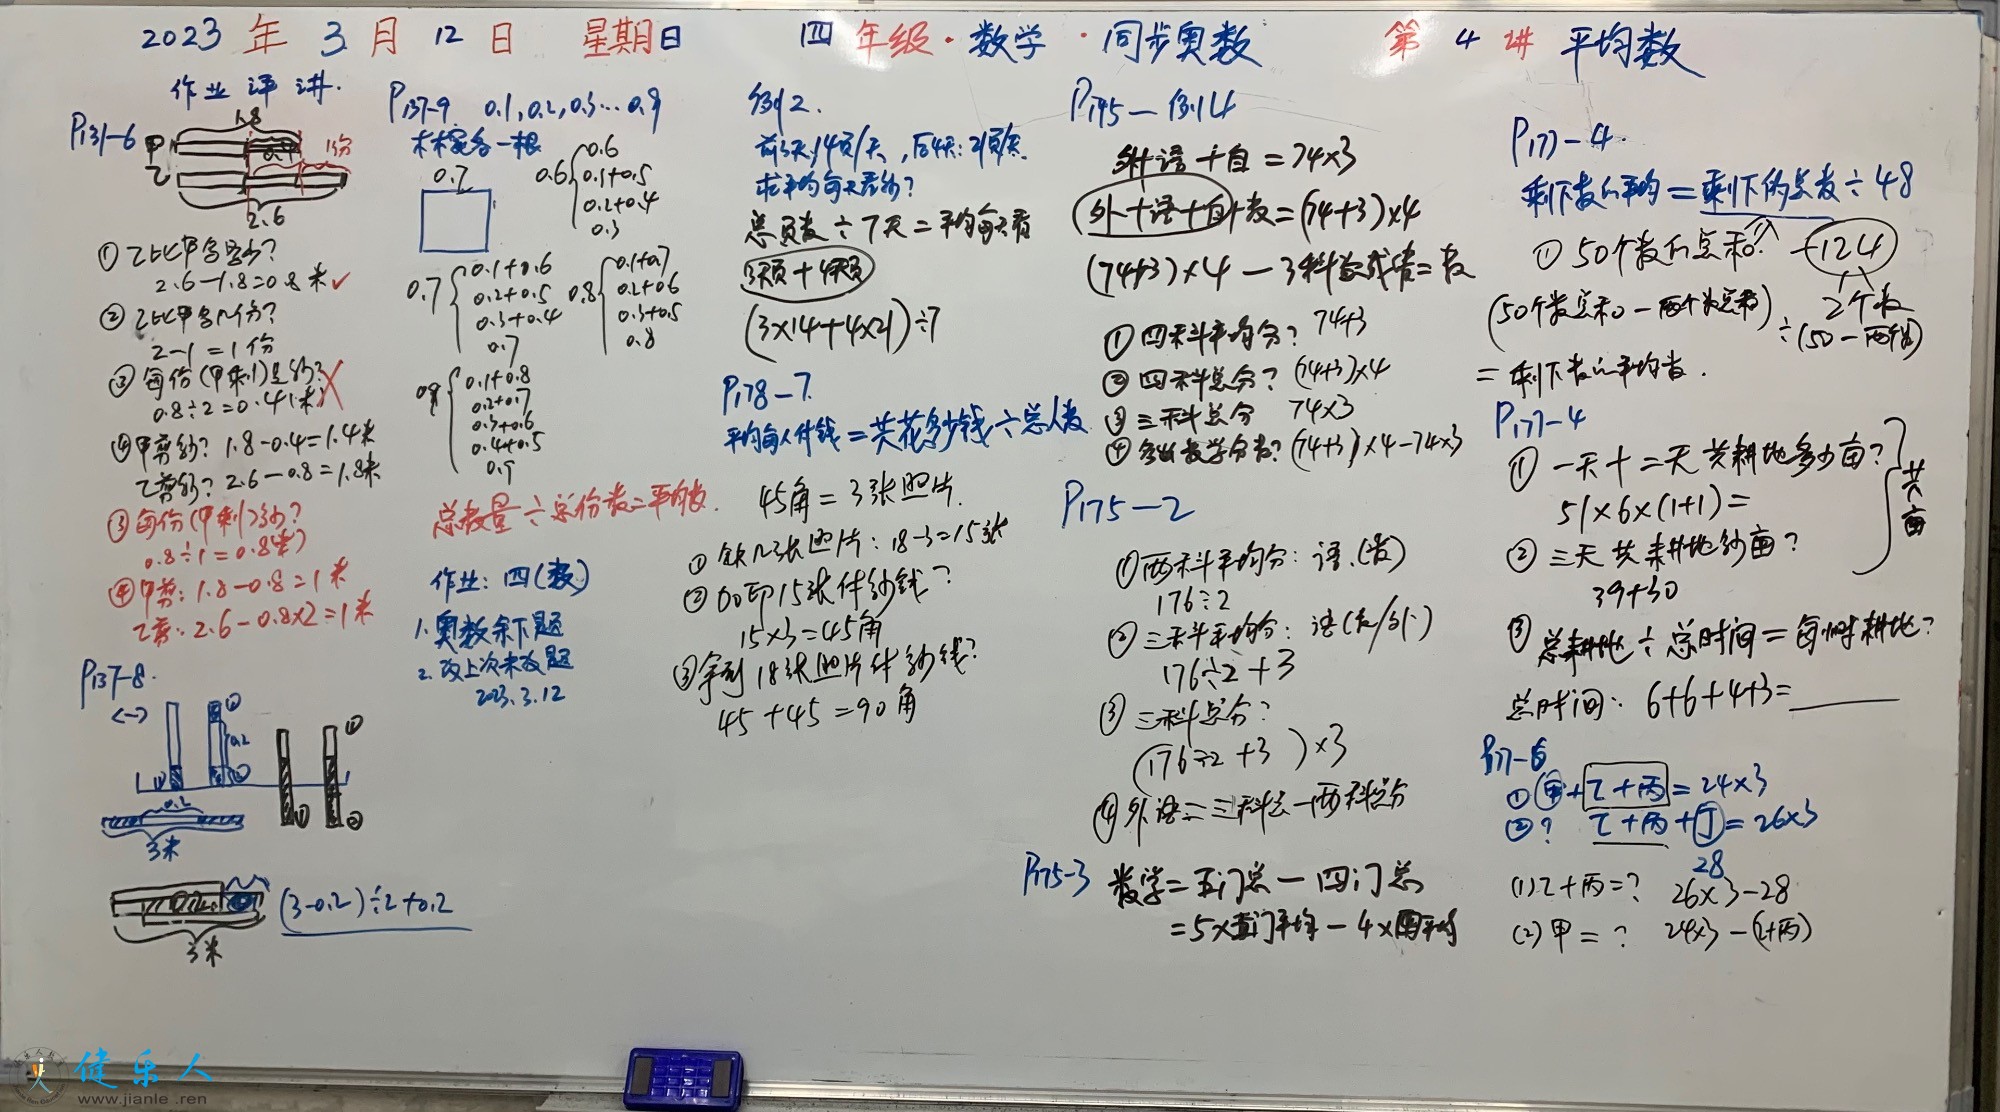 2023年3月12日 星期日 四年级·数学·同步奥数 第4讲 平均数
作业评讲.
P131-6
1.8
甲
0.4
1份
乙
2.6
①乙比甲多多少?
2.6-1.8=0.8米✓
②乙比甲多几份?
2-1=1份
③每份(甲剩)是多少?
0.8÷2=0.4(米)
④甲剪多少? 1.8-0.4=1.4米
乙剪多少? 2.6-0.8=1.8米
③每份(甲剩)多少?
0.8÷1=0.8(米)
④甲剪: 1.8-0.8=1米
乙剪: 2.6-0.8×2=1米
P137-8.
①
0.2
②
0.2
3米
①
②
①
②
0.2
(3-0.2)÷2+0.2
3米
P137-9 0.1,0.2,0.3…0.9
木棍各一根
0.7
0.6
0.6
0.1+0.5
0.2+0.4
0.3
0.7
0.1+0.6
0.2+0.5
0.3+0.4
0.7
0.8
0.1+0.7
0.2+0.6
0.3+0.5
0.8
0.9
0.1+0.8
0.2+0.7
0.3+0.6
0.4+0.5
0.9
总数量÷总份数=平均数.
作业: 四(数)
1.奥数余下题
2.改上次未改题
2023.3.12
例2.
前3天:14页/天,后4天:21页/天.
求平均每天看多少?
总页数÷7天=平均每天看
3天页+4天页
(3×14+4×21)÷7
P178-7.
平均每人付钱=共花多少钱÷总人数
45角=3张照片.
①缺几张照片: 18-3=15张
②加印15张付多少钱?
15×3=45角
③拿到18张照片付多少钱?
45+45=90角
P195-例4
外+语+自=74×3
外+语+自+数=(74+3)×4
(74+3)×4-3科总成绩=数
①四科平均分? 74+3
②四科总分? (74+3)×4
③三科总分 74×3
④多少数学分数? (74+3)×4-74×3
P175-2
①两科平均分: 语.(数)
176÷2
②三科平均分: 语(数/外)
176÷2+3
③三科总分?
(176÷2+3)×3
④外语=三科总-两科总分
P175-3 数学=五门总-四门总
=5×五门平均-4×四平均
P177-4.
剩下数的平均=剩下的总数÷48
①50个数的总和? -124
2个数
(50个数总和-两个数总和)÷(50-两个)
=剩下数的平均数.
P177-4
①一天+二天共耕地多少亩?
51×6×(1+1)=
②三天共耕地多少亩?
39+30
共亩
③总耕地÷总时间=每小时耕地?
总时间: 6+6+4+3=
P177-6
①甲+乙+丙=24×3
②? 乙+丙+丁=26×3
28
(1)乙+丙=? 26×3-28
(2)甲=? 24×3-(乙+丙)
健乐人
www.jianle.ren